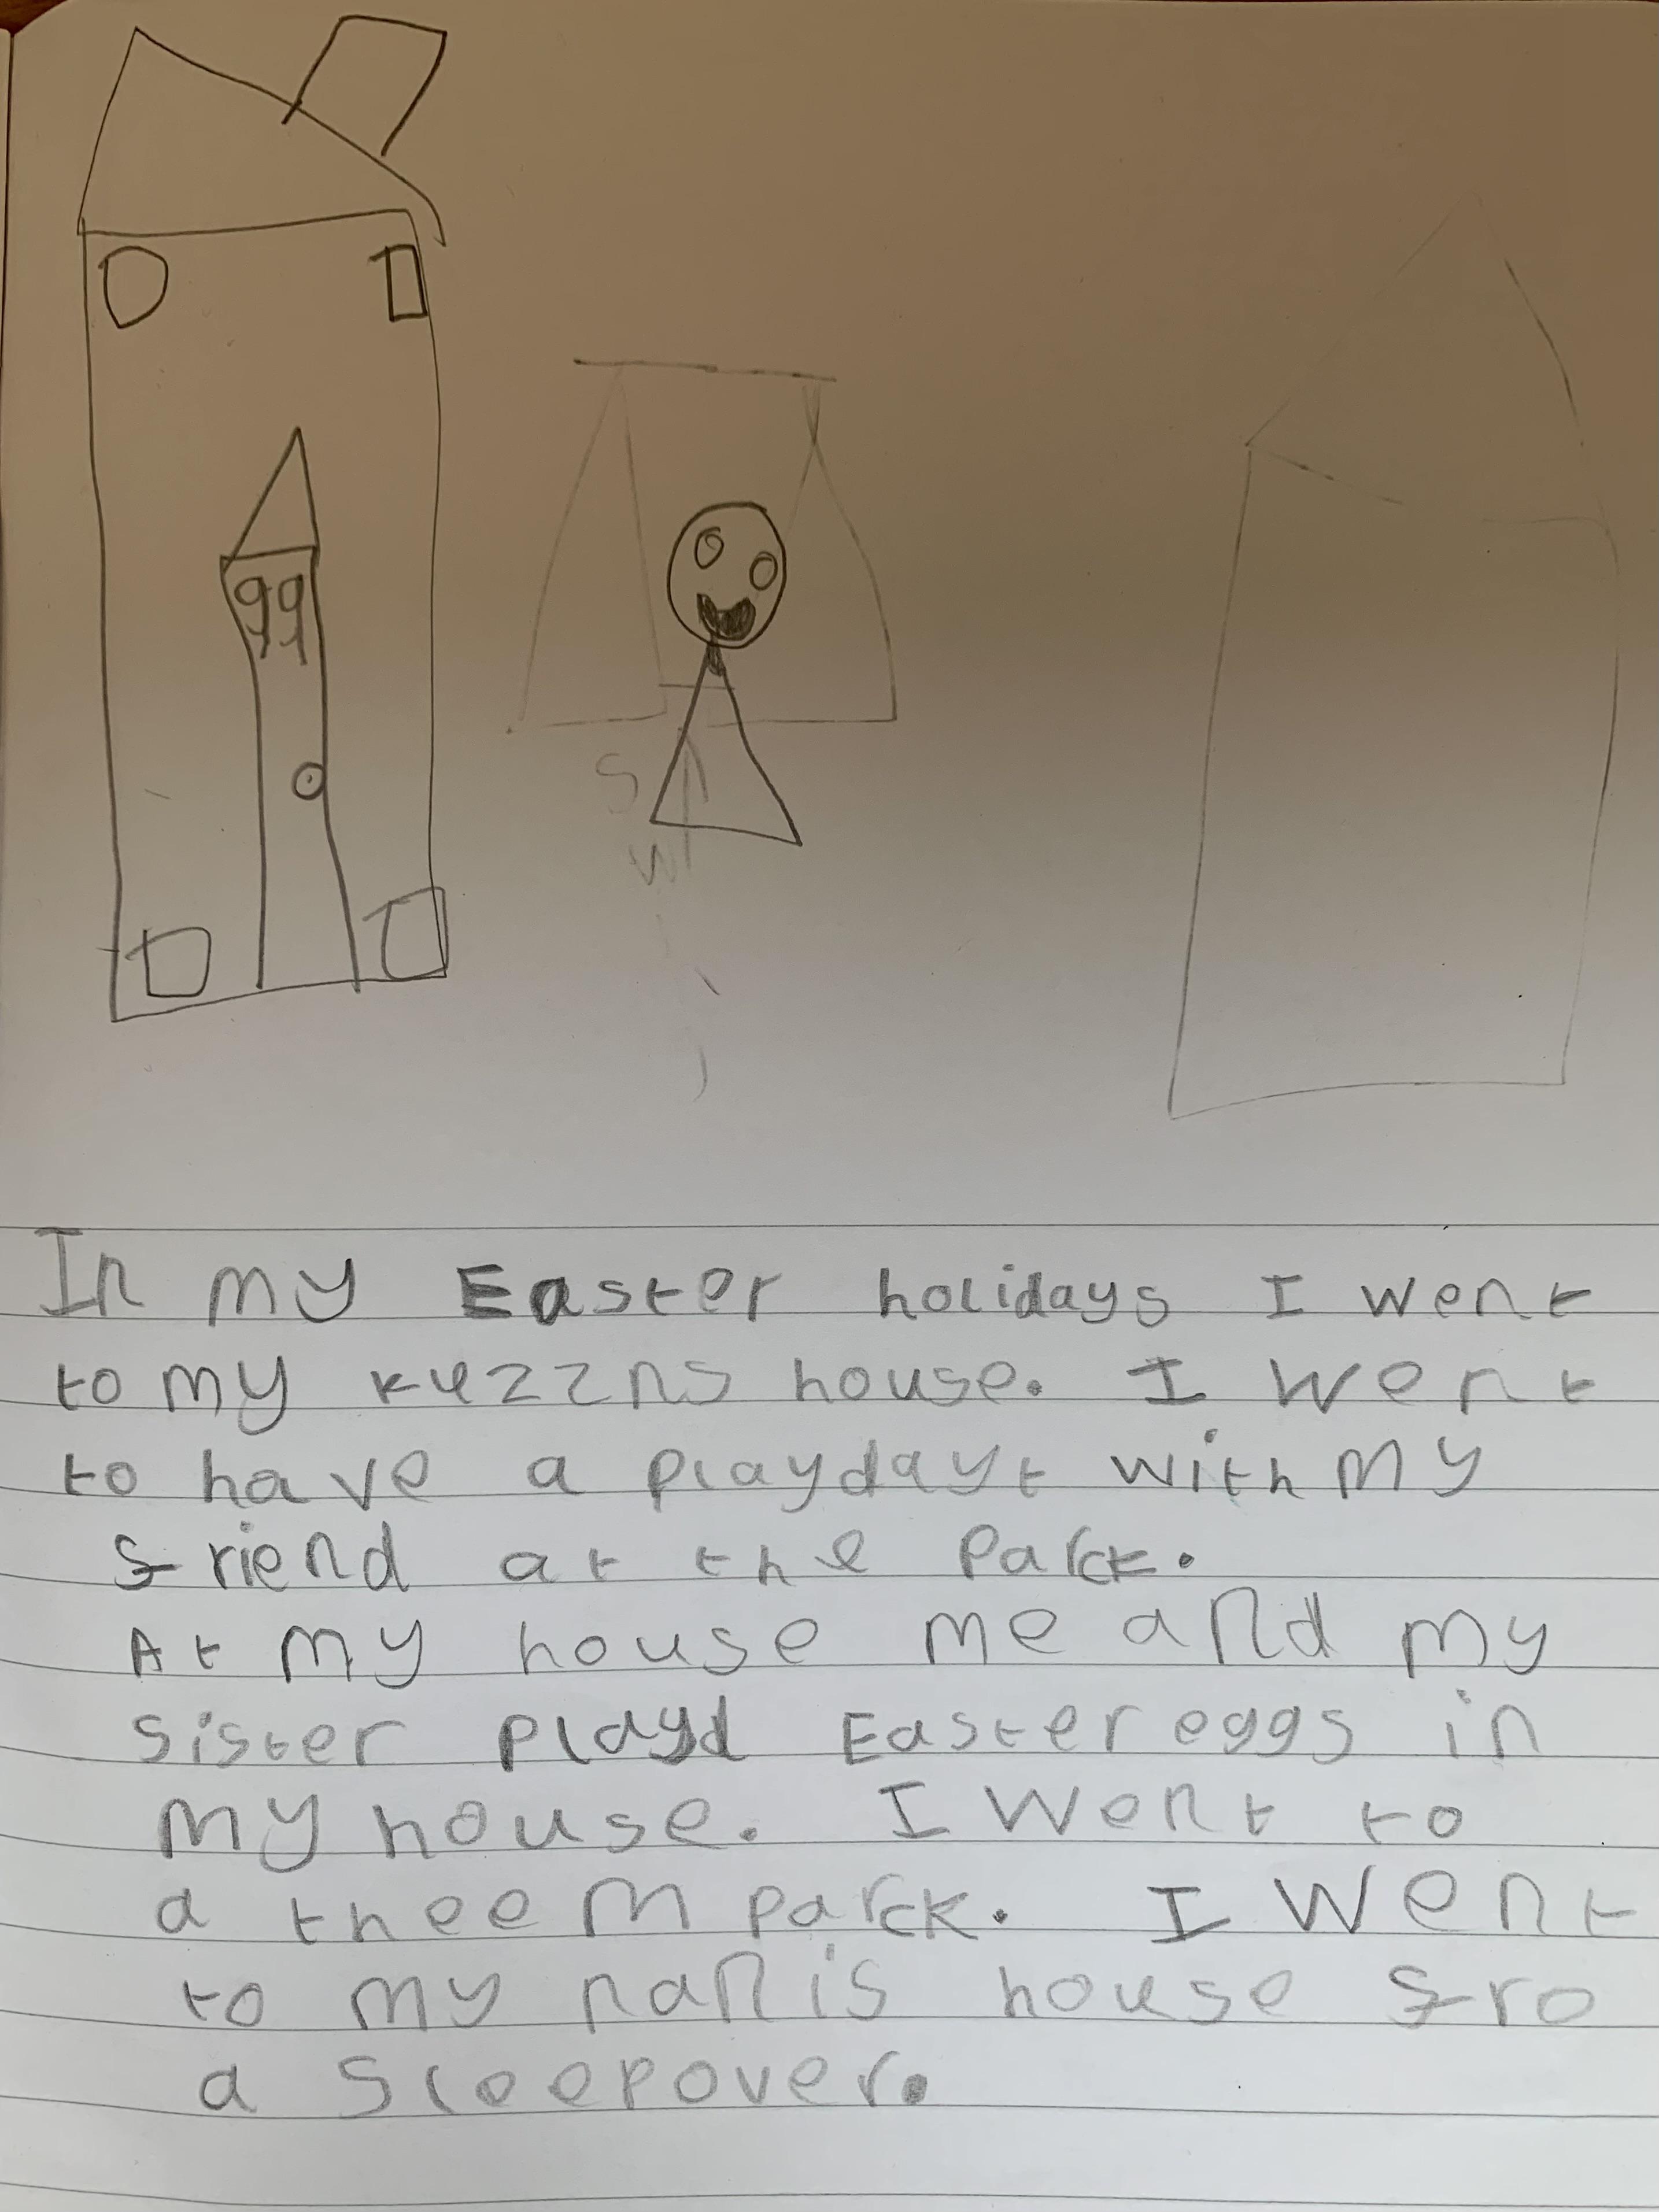 99
S
W
In my Easter holidays I went
to my kuzzns house. I went
to have a playdayt with my
friend at the Parck.
At my house me and my
sister playd Easter eggs in
my house. I went to
a theem parck. I went
to my nanis house fro
a sleepover.